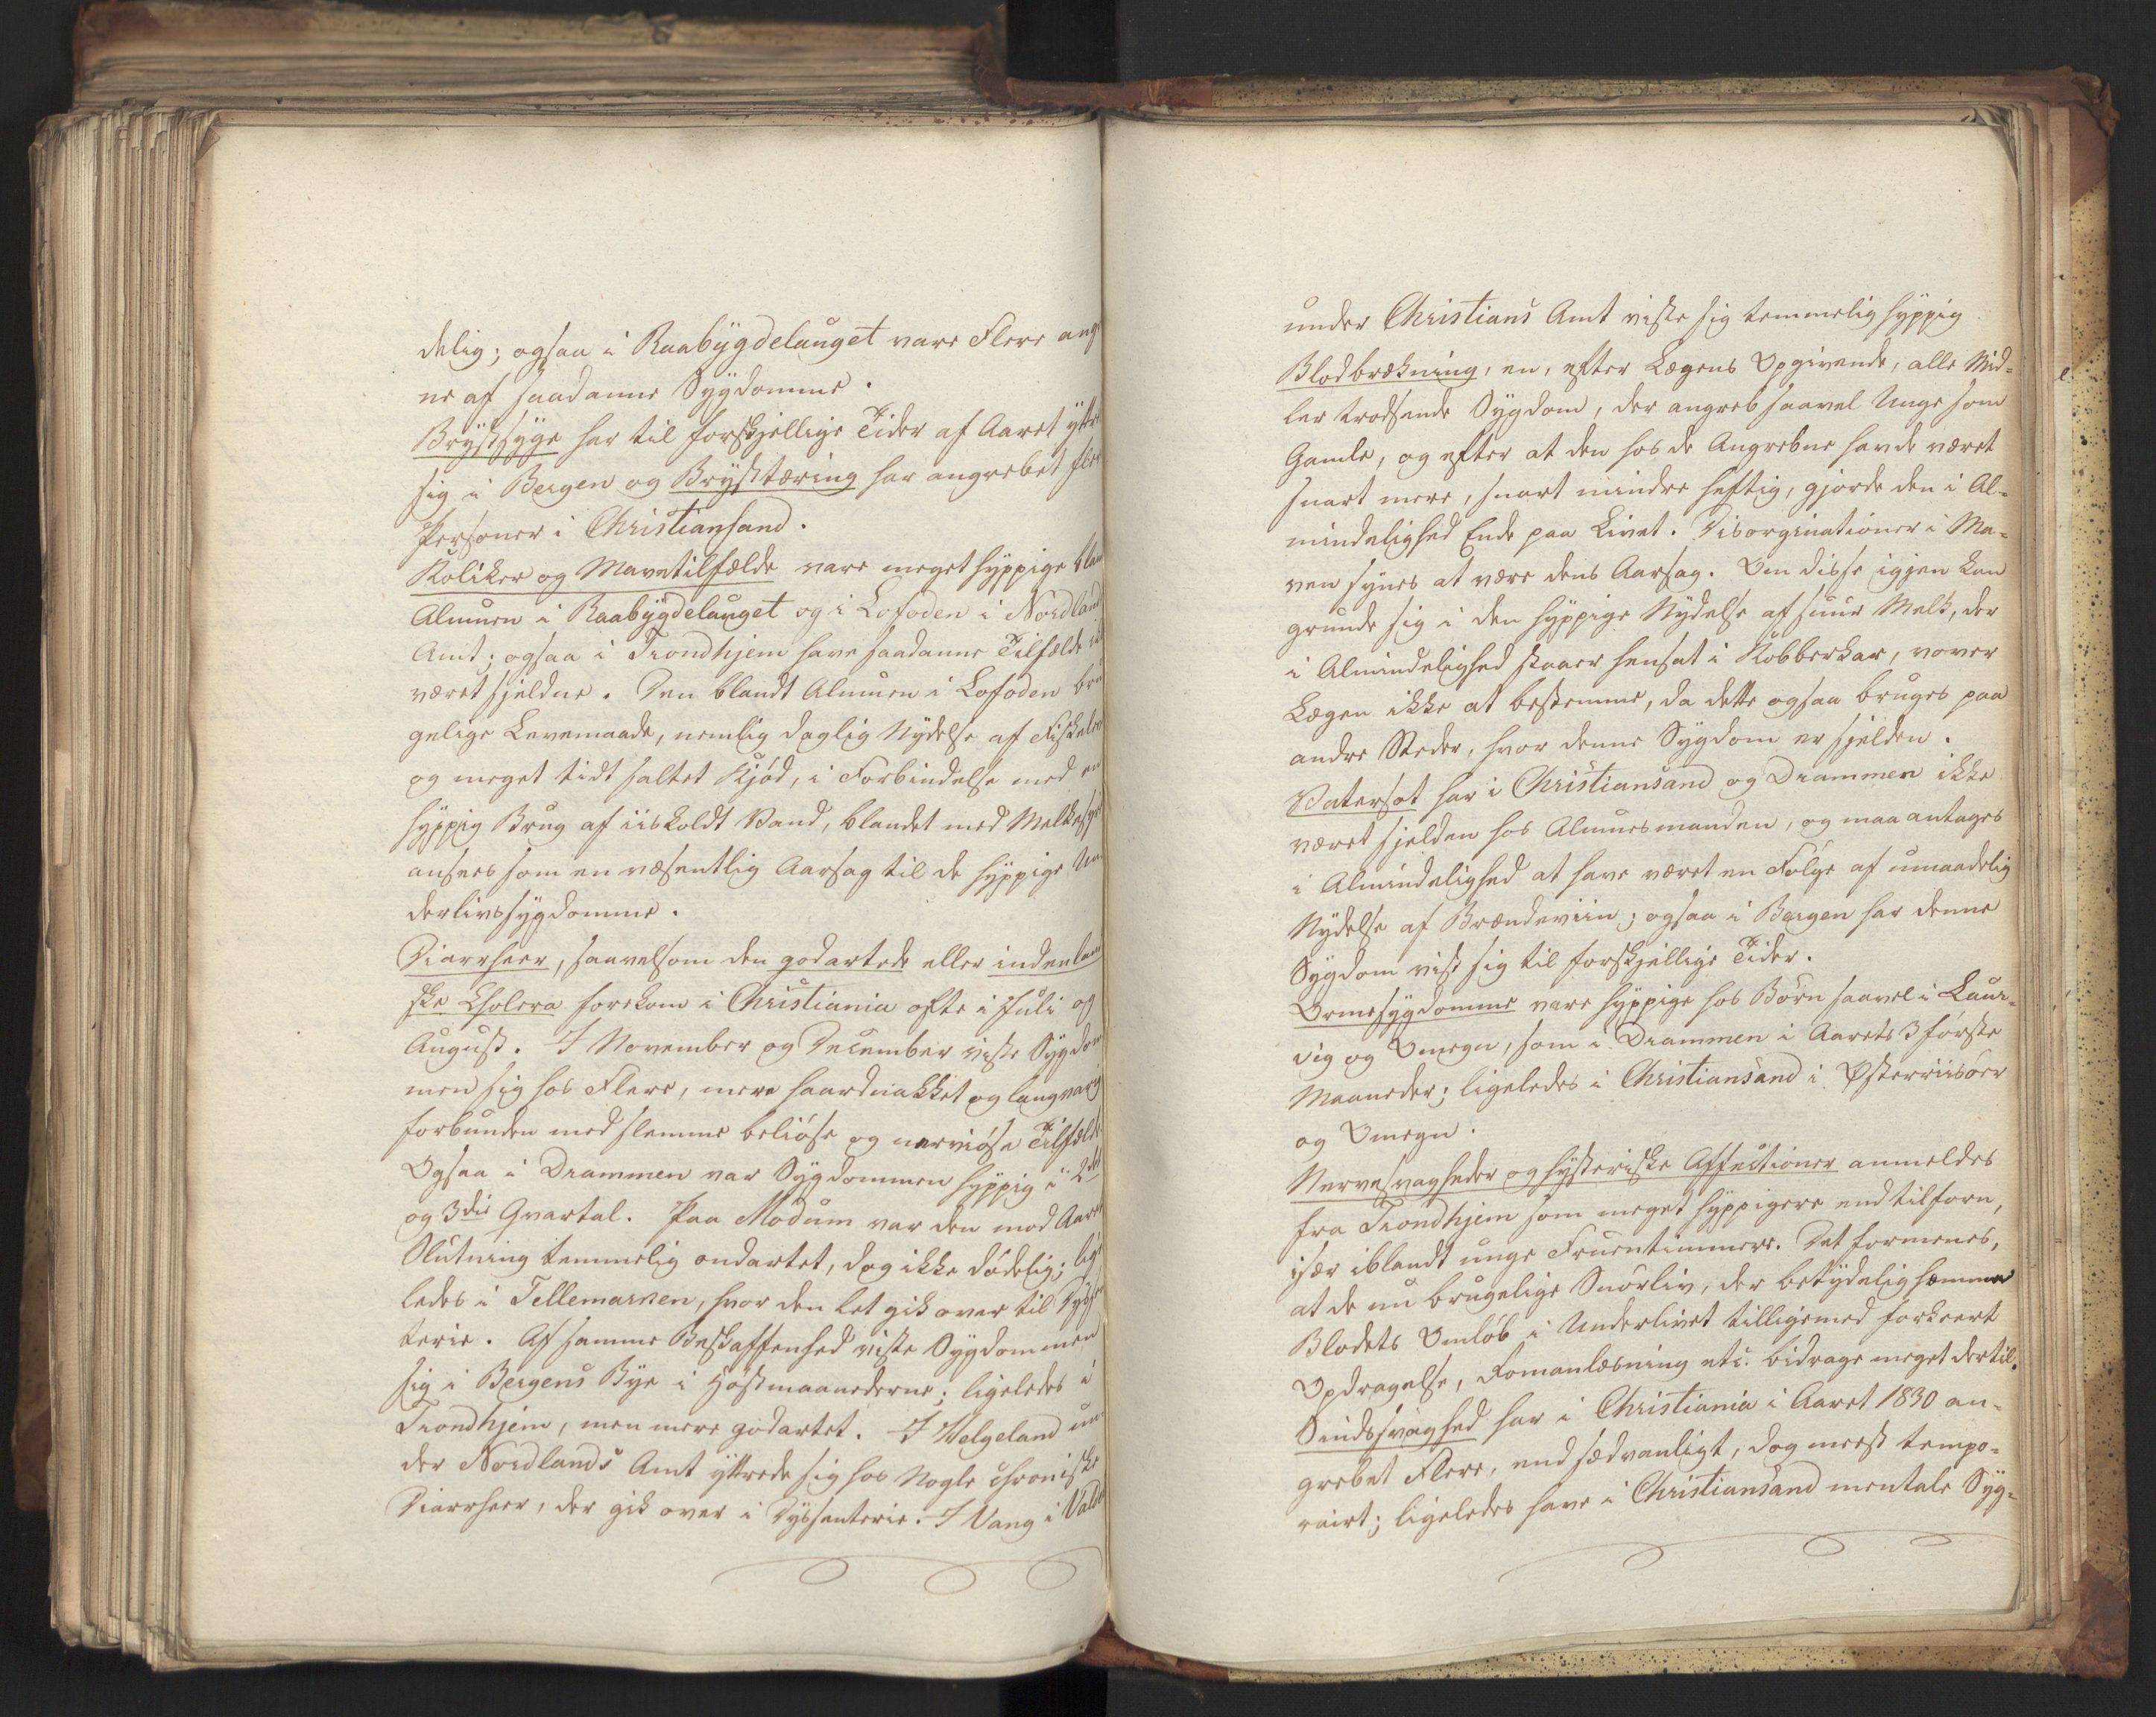 delig; ogsaa i Raabygdelauget vare Flere ang
ne af saadanne Sygdomme.
Brystsyge har til forskjellige Tider af Aaret yttr
sig i Bergen og Brysttæring har angrebet fler
Personer i Christiansand.
Koliker og Mavetilfælde vare meget hyppige blan
Almuen i Raabygdelauget og i Lofoden i Nordland
Amt; ogsaa i Trondhjem have saadanne Tilfælde
været sjeldne. Den blandt Almuen i Lofoden bru
gelige Levemaade, nemlig daglig Nydelse af Fiskelev
og meget tidt saltet Kjød, i Forbindelse med en
hyppig Brug af iiskoldt Vand, blandet med Melkesyre
ansees som en væsentlig Aarsag til de hyppige Un
derlivssygdomme.
Diarrheer, saavelsom den godartede eller indenlan
ske Cholera forekom i Christiania ofte i Juli og
August. I November og December viste Sygdom
men sig hos Flere, mere haardnakket og langvarig
forbunden med slemme beliøse og nerviøse Tilfælde
Ogsaa i Drammen var Sygdommen hyppig i 2det
og 3die Qvartal. Paa Modum var den mod Aaret
Slutning temmelig ondartet, dog ikke dødelig; lige
ledes i Tellemarken, hvor den let gik over til Dysen
terie. Af samme Beskaffenhed viste Sygdommen
sig i Bergens Bye i Høstmaanederne; ligeledes i
Trondhjem, men mere godartet. I Helgeland un
der Nordlands Amt yttrede sig hos Nogle chroniske
Diarrheer, der gik over i Dyssenterie. I Vang i Valde
under Christians Amt viste sig temmelig hyppig
Blodbrækning, en, efter Lægens Opgivende, alle Mid=
ler trodsende Sygdom, der angreb saavel Unge som
Gamle, og efter at den hos de Angrebne havde været
snart mere, snart mindre heftig, gjorde den i Al=
mindelighed Ende paa Livet. Disorginationer i Ma=
ven synes at være dens Aarsag. Om disse igjen kan
grunde sig i den hyppige Nydelse af suur Melk, der
i Almindelighed staaer hensat i Kobberkar, vover
Lægen ikke at bestemme, da dette ogsaa bruges paa
andre Steder, hvor denne Sygdom er sjelden.
Vatersot har i Christiansand og Drammen ikke
været sjelden hos Almuesmanden, og maa antages
i Almindelighed at have været en Følge af umaadelig
Nydelse af Brændeviin; ogsaa i Bergen har denne
Sygdom vist sig til forskjellige Tider.
Ormesygdomme vare hyppige hos Børn saavel i Laur=
vig og Omegn, som i Drammen i Aarets 3 første
Maaneder; ligeledes i Christiansand i Østerriisøer
og Omegn.
Nervesvagheder og hysteriske Affectioner anmeldes
fra Trondhjem som meget hyppigere end tilforn,
især iblandt unge Fruentimmere. Det formenes,
at de nu brugelige Snørliv, der betydelig hæmme
Blodets Omløb i Underlivet tilligemed forkeert
Opdragelse, Romanlæsning etc. bidrage meget dertil.
Sindssvaghed har i Christiania i Aaret 1830 an=
grebet Flere, end sædvanligt, dog meest tempo=
rairt; ligeledes have i Christiansand mentale Syg=